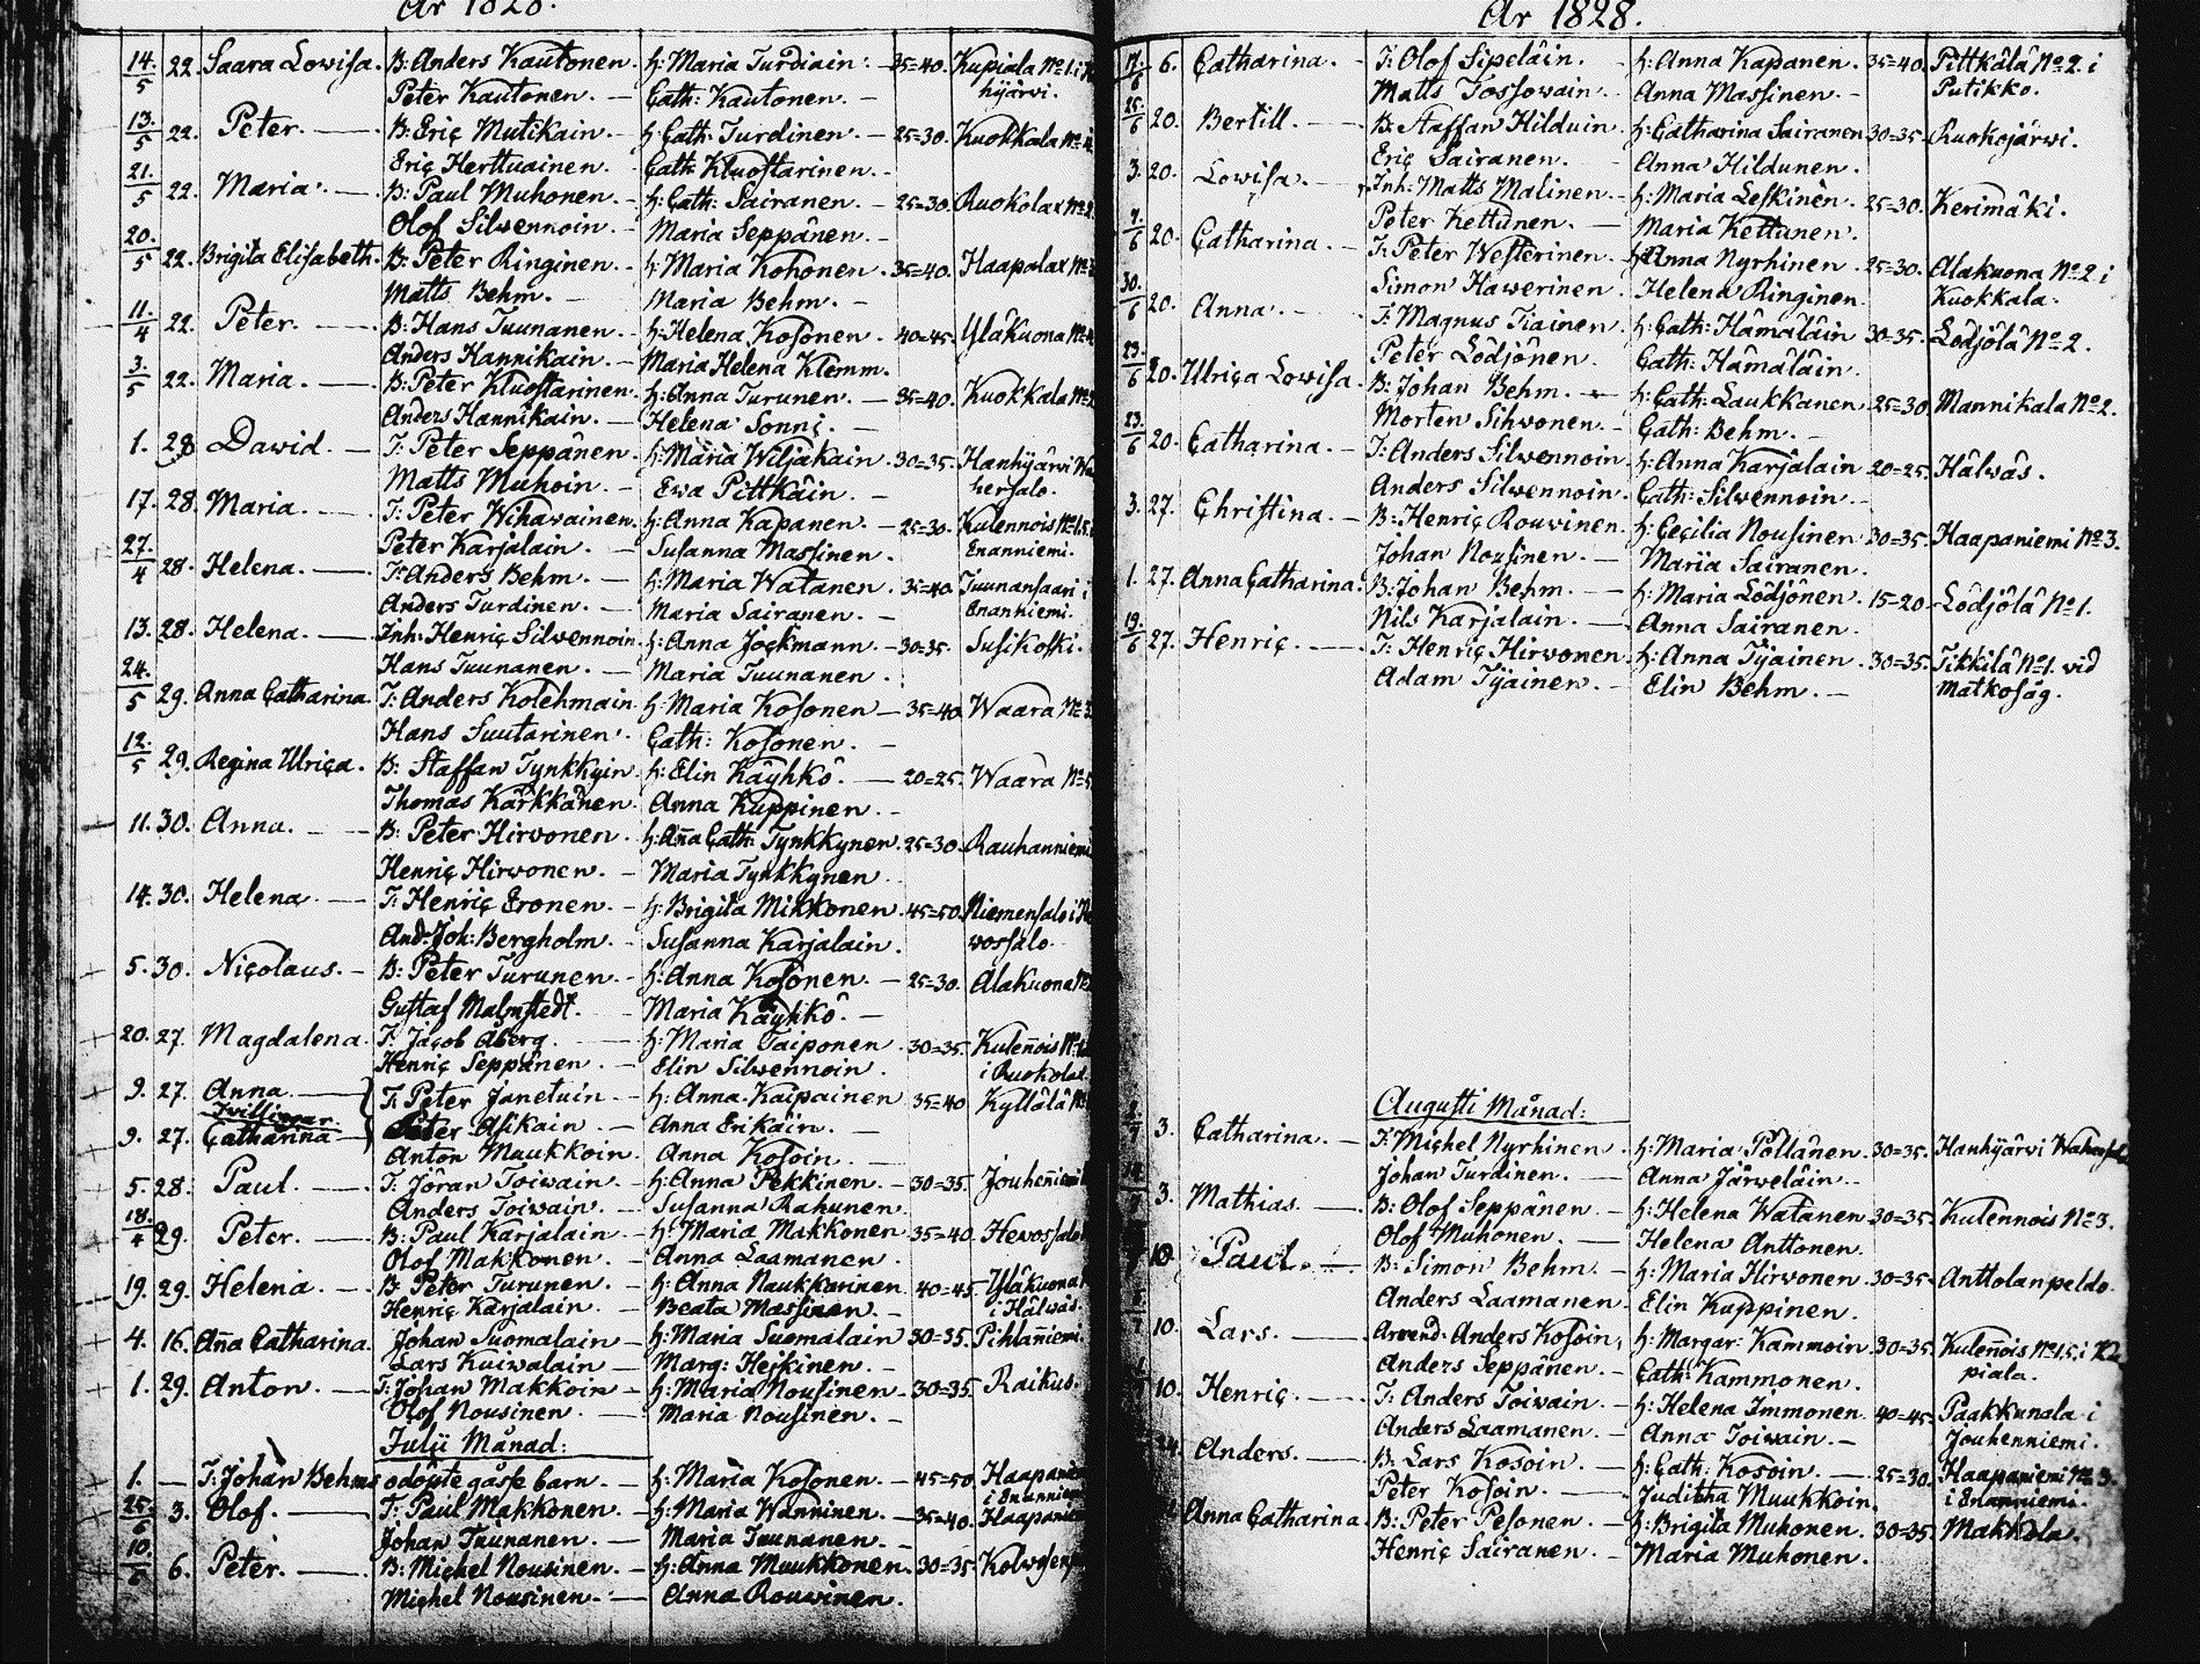 År 1828.
14/5 22. Saara Lowisa. B: Anders Kautonen. h: Maria Turdiain: 35=40. Kupiala No 1. i
Peter Kautonen. — Cath: Kautonen. — hÿärvi.
13/5 22. Peter. — B: Eric Mutikain. h: Cath: Turdinen. — 25=30. Kuokkala No
Eric Herttuainen. Cath: Kluostarinen. —
21/5 22. Maria. — B: Paul Muhonen. h: Cath: Sairanen. — 25=30. Ruokolax No 2
Olof Silwennoin. — Maria Seppänen. —
20/5 22. Brigita Elisabeth. B: Peter Ringinen. h: Maria Kohonen. 35=40. Haapalax No
Matts Behm. — Maria Behm. —
11/4 22. Peter. — B: Hans Tuunanen. h: Helena Kosonen. 40=45. Yläkuona No
Anders Hannikain. — Maria Helena Klemm.
3/5 22. Maria. — B: Peter Kluostarinen. h: Anna Turunen. — 35=40. Kuokkala No
Anders Hannikain. — Helena Sonni. —
1. 28 Dawid. — T: Peter Seppänen. h: Maria Wiljakain. 30=35. Hanhÿärvi Wa
Matts Muhoin. — Ewa Pittkäin. — hersalo.
17. 28. Maria. — T: Peter Wihawainen. h: Anna Kapanen. — 25=30. Kulennois No 1.5.
Peter Karjalain. — Susanna Massinen. Enanniemi.
27/4 28. Helena. — T: Anders Behm. — h: Maria Watanen. 35=40. Tuunansaari i
Anders Turdinen. — Maria Sairanen. — Enanniemi.
13. 28. Helena. — Inh: Henric Silwennoin. h: Anna Jockmann. — 30=35. Susikoski.
Hans Tuunanen. — Maria Tuunanen.
24/5 29. Anna Catharina. T: Anders Kolehmain. h: Maria Kosonen — 35=40. Waara No 3
Hans Suutarinen. Cath: Kosonen. —
12/5 29. Regina Ulrica. B: Staffan Tynkkyin. h: Elin Käyhkö. — 20=25. Waara No 5
Thomas Kärkkänen. Anna Kuppinen. —
11. 30. Anna. — B: Peter Hirvonen. h: Aña Cath: Tynkkynen. 25=30. Rauhanniemi
Henric Hirwonen. — Maria Tynkkynen
14. 30. Helena. — T: Henric Eronen. — h: Brigita Mikkonen. 45=50. Niemensalo i He
And: Joh: Bergholm. — Susanna Karjalain. wossalo.
5. 30. Nicolaus. — B: Peter Turunen. — h: Anna Kosonen. — 25=30. Alakuona No
Gustaf Malmstedt. Maria Käyhkö. —
20. 27. Magdalena. T: Jacob Åberg. h: Maria Taiponen. 30=35. Kuleñois No
Henric Seppänen. — Elin Silwennoin. i Ruokolax.
9. 27. Anna. — T: Peter Janetuin. — h: Anna Kaipainen 35=40 Kyllälä No
Tvillingar.
9. 27. Catharina — Peter Asikain. — Anna Erikäin. —
Anton Muukkoin. Anna Kosoin. —
5. 28. Paul. — T: Jöran Toiwain. — h: Anna Pekkinen. — 30=35. Jouheñiemi
Anders Toiwain. — Susanna Rahunen.
18/4 29. Peter. — B: Paul Karjalain — h: Maria Makkonen 35=40. Hewossalo
Olof Makkonen. — Anna Laamanen.
19. 29. Helena. — B: Peter Turunen. — h: Anna Naukkarinen 40=45. Yläkuona
Henric Karjalain. — Beata Massinen. — i Hälwäs.
4. 16. Aña Catharina. Johan Suomalain — h: Maria Suomalain 30=35. Pihlañiemi.
Lars Kuiwalain — Marg: Heikinen. —
1. 29. Anton. — T: Johan Makkoin — h: Maria Nousinen. 30=35. Raikus.
Olof Nousinen. — Maria Nousinen. —
Julii Månad:
1. — T: Johan Behms odöpte gosse barn. — h: Maria Kosonen. — 45=50. Haapanie
i Enanniem
25/6 3. Olof. — T: Paul Makkonen. — h: Maria Wanninen. — 35=40. Haapanie
Johan Tuunanen. — Maria Tuunanen. —
10/6 6. Peter. — B: Michel Nousinen. — h: Anna Muukkonen. 30=35.
Michel Nousinen. — Anna Rouwinen.
År 1828.
17/6 6. Catharina. — T: Olof Sipeläin. — h: Anna Kapanen. 35=40. Pittkälä No 2. i
Matts Tossowain. — Anna Massinen. — Putikko.
25/6 20. Bertill. — B: Staffan Hilduin. h: Catharina Sairanen 30=35. Ruokojärwi.
Eric Sairanen. — Anna Hildunen.
3. 20. Lowisa. — Inh: Matts Malinen. — h: Maria Leskinen. 25=30. Kerimäki.
Peter Kettunen. — Maria Kettunen.
7/6 20. Catharina. — T: Peter Westerinen. h: Anna Nyrhinen. 25=30. Alakuona No 2 i
Simon Hawerinen. Helena Ringinen. Kuokkala.
30/6 20. Anna. — T: Magnus Tiainen. h: Cath: Hämäläin 30=35. Lödjölä No 2.
Peter Lödjönen. Cath: Hämäläin.
23/6 20. Ulrica Lowisa. B: Johan Behm. — h: Cath: Laukkanen. 25=30. Mannikala No 2.
Morten Sihwonen. — Cath: Behm. —
23/6 20. Catharina. — T: Anders Silwennoin. h: Anna Karjalain 20=25. Hälwäs.
Anders Silwennoin. Cath: Silwennoin —
3. 27. Christina. — B: Henric Rouwinen. h: Cecilia Nousinen 30=35. Haapaniemi No 3.
Johan Nousinen. — Maria Sairanen.
1. 27. Anna Catharina. B: Johan Behm. — h: Maria Lödjönen. 15=20. Lödjölä No 1.
Nils Karjalain. — Anna Sairanen.
19/6 27. Henric. — T: Henric Hirwonen. h: Anna Tijainen. 30=35. Tikkilä No 1. vid
Adam Tijainen. — Elin Behm. — Matkosåg.
Augusti Månad:
3. Catharina. — T: Michel Nyrhinen. h: Maria Pöllänen. 30=35. Hanhÿärvi
Johan Turdinen. — Anna Järweläin. —
3. Mathias. — B: Olof Seppänen. — h: Helena Watanen 30=35. Kulennois No 3.
Olof Muhonen. — Helena Anttonen.
10 Paul. — B: Simon Behm. — h: Maria Hirwonen. 30=35. Anttolanpeldo.
Anders Laamanen. Elin Kuppinen.
10. Lars. — Arrend: Anders Kosoin, h: Margar: Kammoin. 30=35. Kuleñois No 1.5. i
Anders Seppänen. — Cath: Kammonen. piala.
10. Henric. — T: Anders Toiwain. — h: Helena Immonen. 40=45. Paakkunala i
Anders Laamanen. — Anna Toiwain. — Jouhenniemi.
24. Anders. — B: Lars Kosoin. — h: Cath: Kosoin. — 25=30. Haapaniemi No 3.
Peter Kosoin. — Juditha Muukkoin. i Enanniemi.
Anna Catharina. B: Peter Pesonen. — h: Brigita Muhonen. 30=35 Makkola.
Henric Sairanen. — Maria Muhonen.